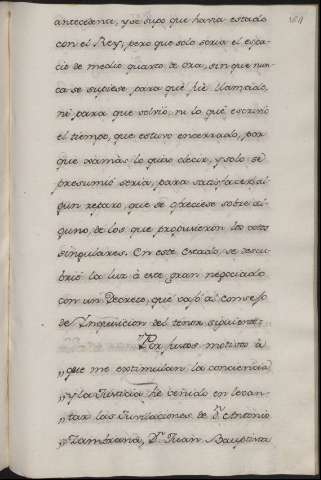 antecedente, y se supo que havia estado
con el Rey; pero que solo seria el espa-
cio de medio quarto de ora, sin que nun-
ca se supiese para que fue llamado,
ni para que volvio, ni lo que escrivio
el tiempo, que estuvo encerrado, por
que xamàs lo quiso decir, y solo se
presumiò seria, para satisfacer al-
gun reparo, que se ofreciese sobre al-
guno, de los que propusieron los votos
singulares. En este estado, se descu-
brio la luz à este gran negociado
con un Decreto, que vajò al consejo
de Ynquisicion del tenor siguiente:
Por justos motivos à
„ que me extimulan la conciencia
„ y la Justicia he venido en levan-
„ tar las Jubilaciones de Dn. Antonio
„ Zambrana, Dn. Juan Bauptista